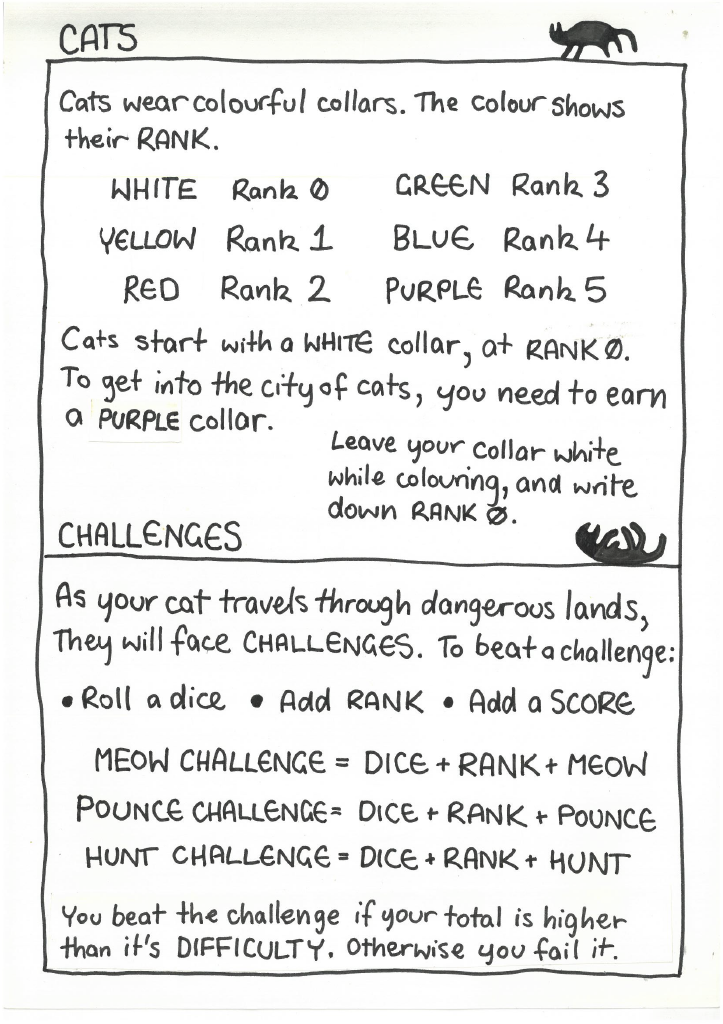 CATS
Cats wear colourful collars. The colour shows
their RANK.
WHITE Rank 0 GREEN Rank 3
YELLOW Rank 1 BLUE Rank 4
RED Rank 2 PURPLE Rank 5
Cats start with a WHITE collar, at RANK 0.
To get into the city of cats, you need to earn
a PURPLE collar.
Leave your collar white
while colouring, and write
down RANK 0.
CHALLENGES
As your cat travels through dangerous lands,
They will face CHALLENGES. To beat a challenge:
• Roll a dice • Add RANK • Add a SCORE
MEOW CHALLENGE = DICE + RANK + MEOW
POUNCE CHALLENGE = DICE + RANK + POUNCE
HUNT CHALLENGE = DICE + RANK + HUNT
You beat the challenge if your total is higher
than it's DIFFICULTY. Otherwise you fail it.